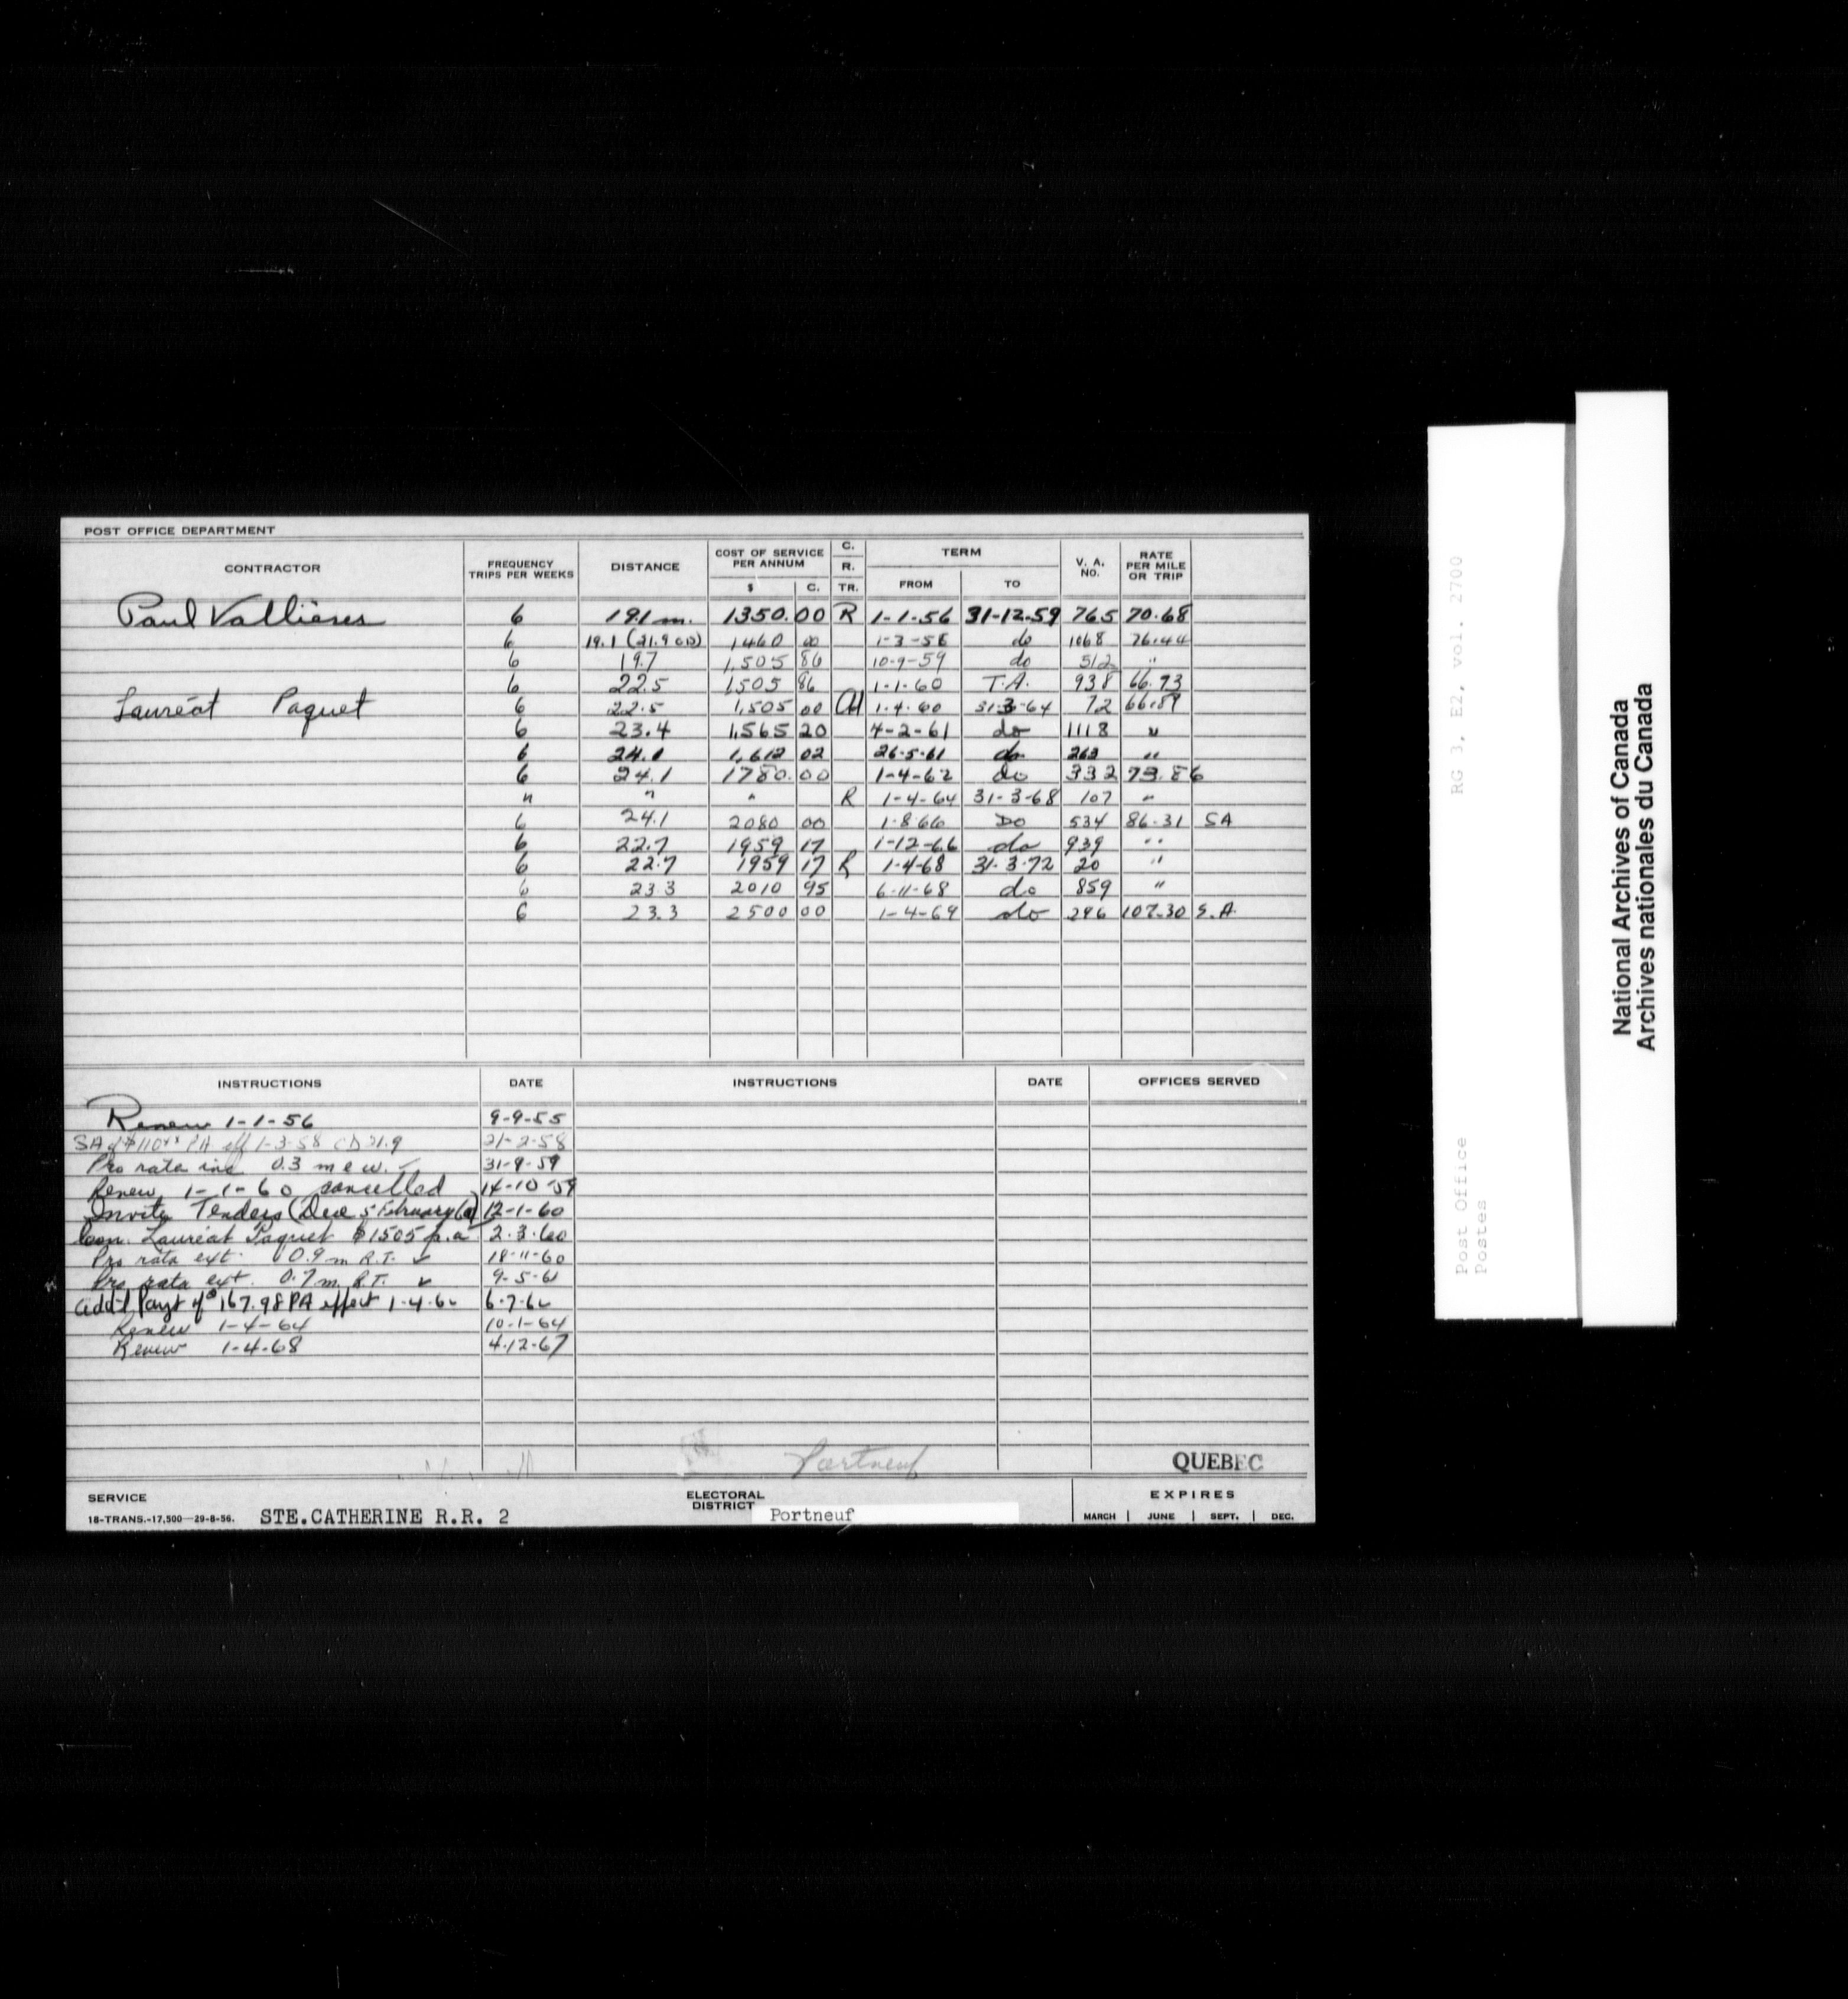 POST OFFICE DEPARTMENT
CONTRACTOR FREQUENCY TRIPS PER WEEKS DISTANCE COST OF SERVICE PER ANNUM $ C. C. R. TR. TERM FROM TO V. A. NO. RATE PER MILE OR TRIP
Paul Vallières 6 19.1 m. 1350.00 R 1-1-56 31-12-59 765 70.68
6 19.1 (21.9 CD) 1460 00 1-3-58 do 1068 76.44
6 19.7 1,505 86 10-9-59 do 512 "
6 22.5 1505 86 1-1-60 T.A. 938 66.93
Lauréat Paquet 6 22.5 1,505 00 Ad 1-4-60 31-3-64 72 66.89
6 23.4 1,565 20 4-2-61 do 1118 "
6 24.1 1,612 02 26-5-61 do 263 "
6 24.1 1780.00 1-4-62 do 332 73.86
" " " R 1-4-64 31-3-68 107 "
6 24.1 2080 00 1-8-66 Do 534 86.31 SA
6 22.7 1959 17 1-12-66 do 939 "
6 22.7 1959 17 R 1-4-68 31-3-72 20 "
6 23.3 2010 95 6-11-68 do 859 "
6 23.3 2500 00 1-4-69 do 296 107.30 S.A.
INSTRUCTIONS DATE INSTRUCTIONS DATE OFFICES SERVED
Renew 1-1-56 9-9-55
SA of $110 PA eff 1-3-58 CD 21.9 21-2-58
Pro rata inc 0.3 m e w. 31-9-59
Renew 1-1-60 cancelled 14-10-59
Invite Tenders (Due 5 February 60) 12-1-60
Con. Lauréat Paquet $1505 p.a 2.3.60
Pro rata ext. 0.9 m R.T. ✓ 18-11-60
Pro rata ext. 0.7 m. R.T. ✓ 9-5-61
Add'l Payt of $167.98 PA effect 1-4-62 6-7-62
Renew 1-4-64 10-1-64
Renew 1-4-68 4-12-67
Portneuf QUEBEC
SERVICE STE.CATHERINE R.R. 2 ELECTORAL DISTRICT Portneuf EXPIRES
18-TRANS.-17,500—29-8-56. MARCH | JUNE | SEPT. | DEC.
Post Office RG 3, E2, vol. 2700
Postes
National Archives of Canada
Archives nationales du Canada